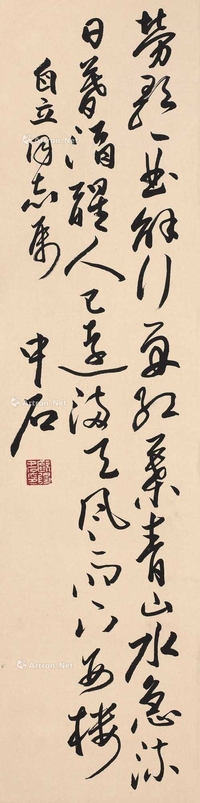 勞歌一曲解行舟紅葉青山水急流
日暮酒醒人已遠滿天風雨下西樓
自立同志属
中石